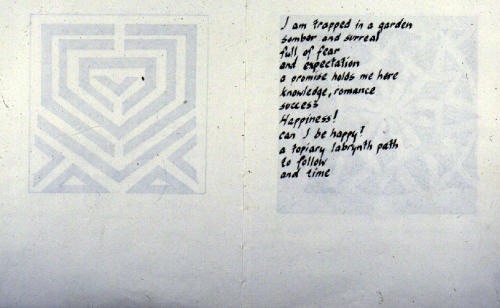 I am trapped in a garden
somber and surreal
full of fear
and expectation
a promise holds me here
knowledge, romance
success
Happiness!
can I be happy?
a topiary labrynth path
to follow
and time